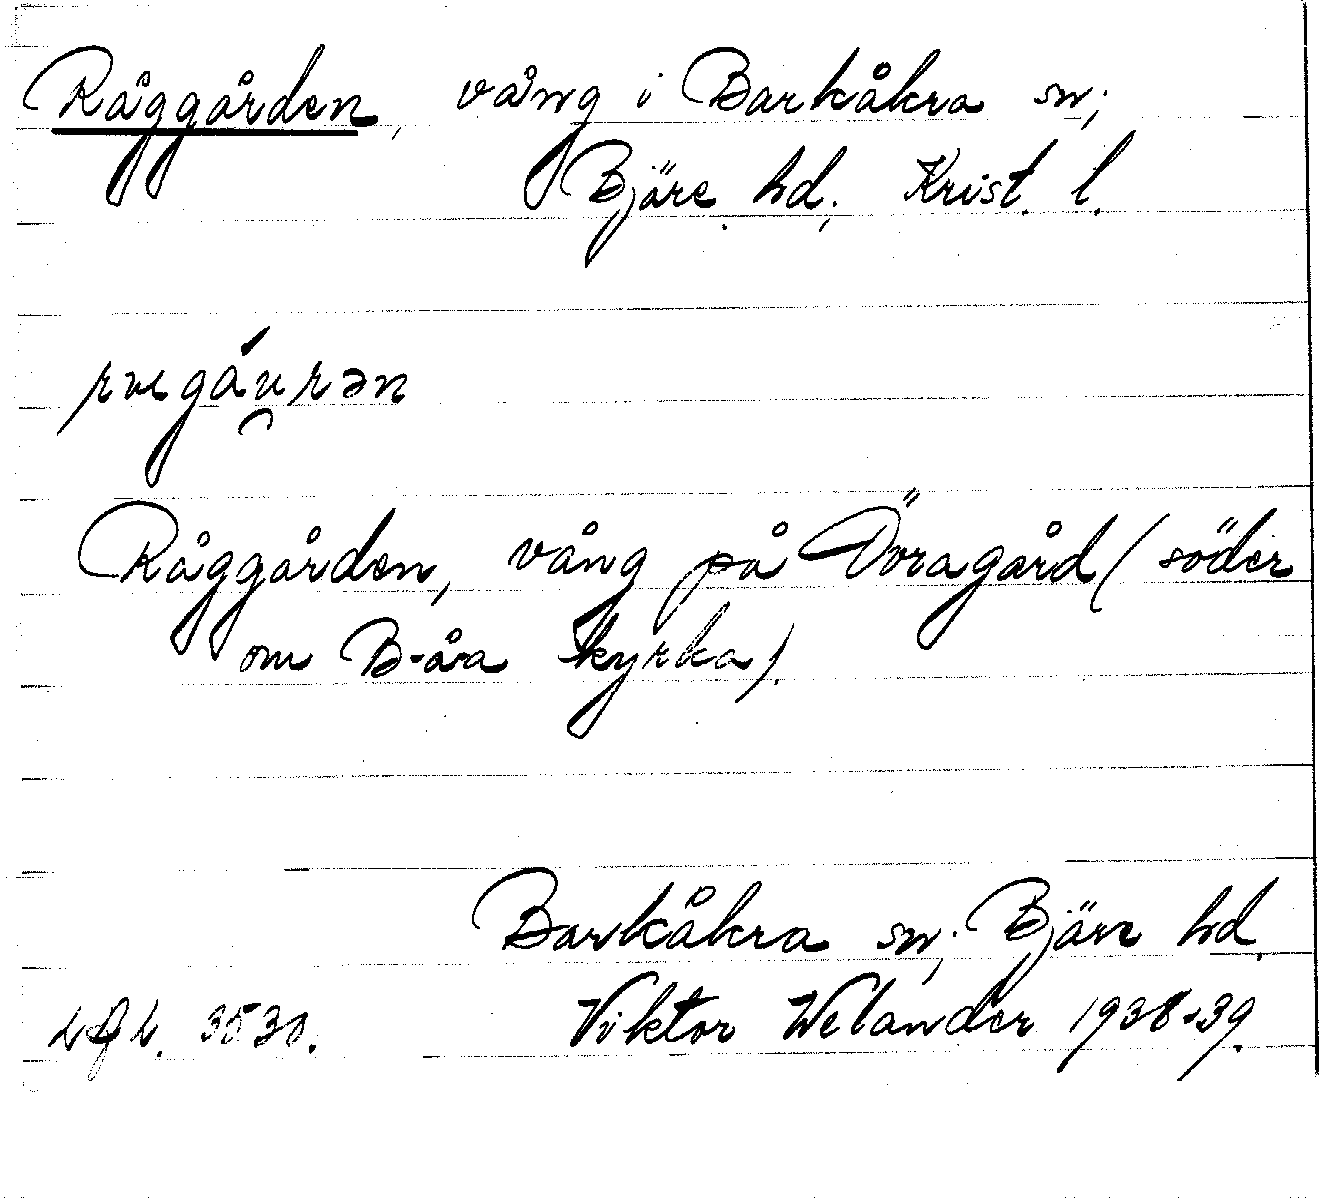 Råggården, vång i Barkåkra sn;
Bjäre hd, Krist. l.
Råggården, vång på Öragård (söder
om B-åa kyrka).
Barkåkra sn; Bjäre hd.
3530. Viktor Welander 1938-39.